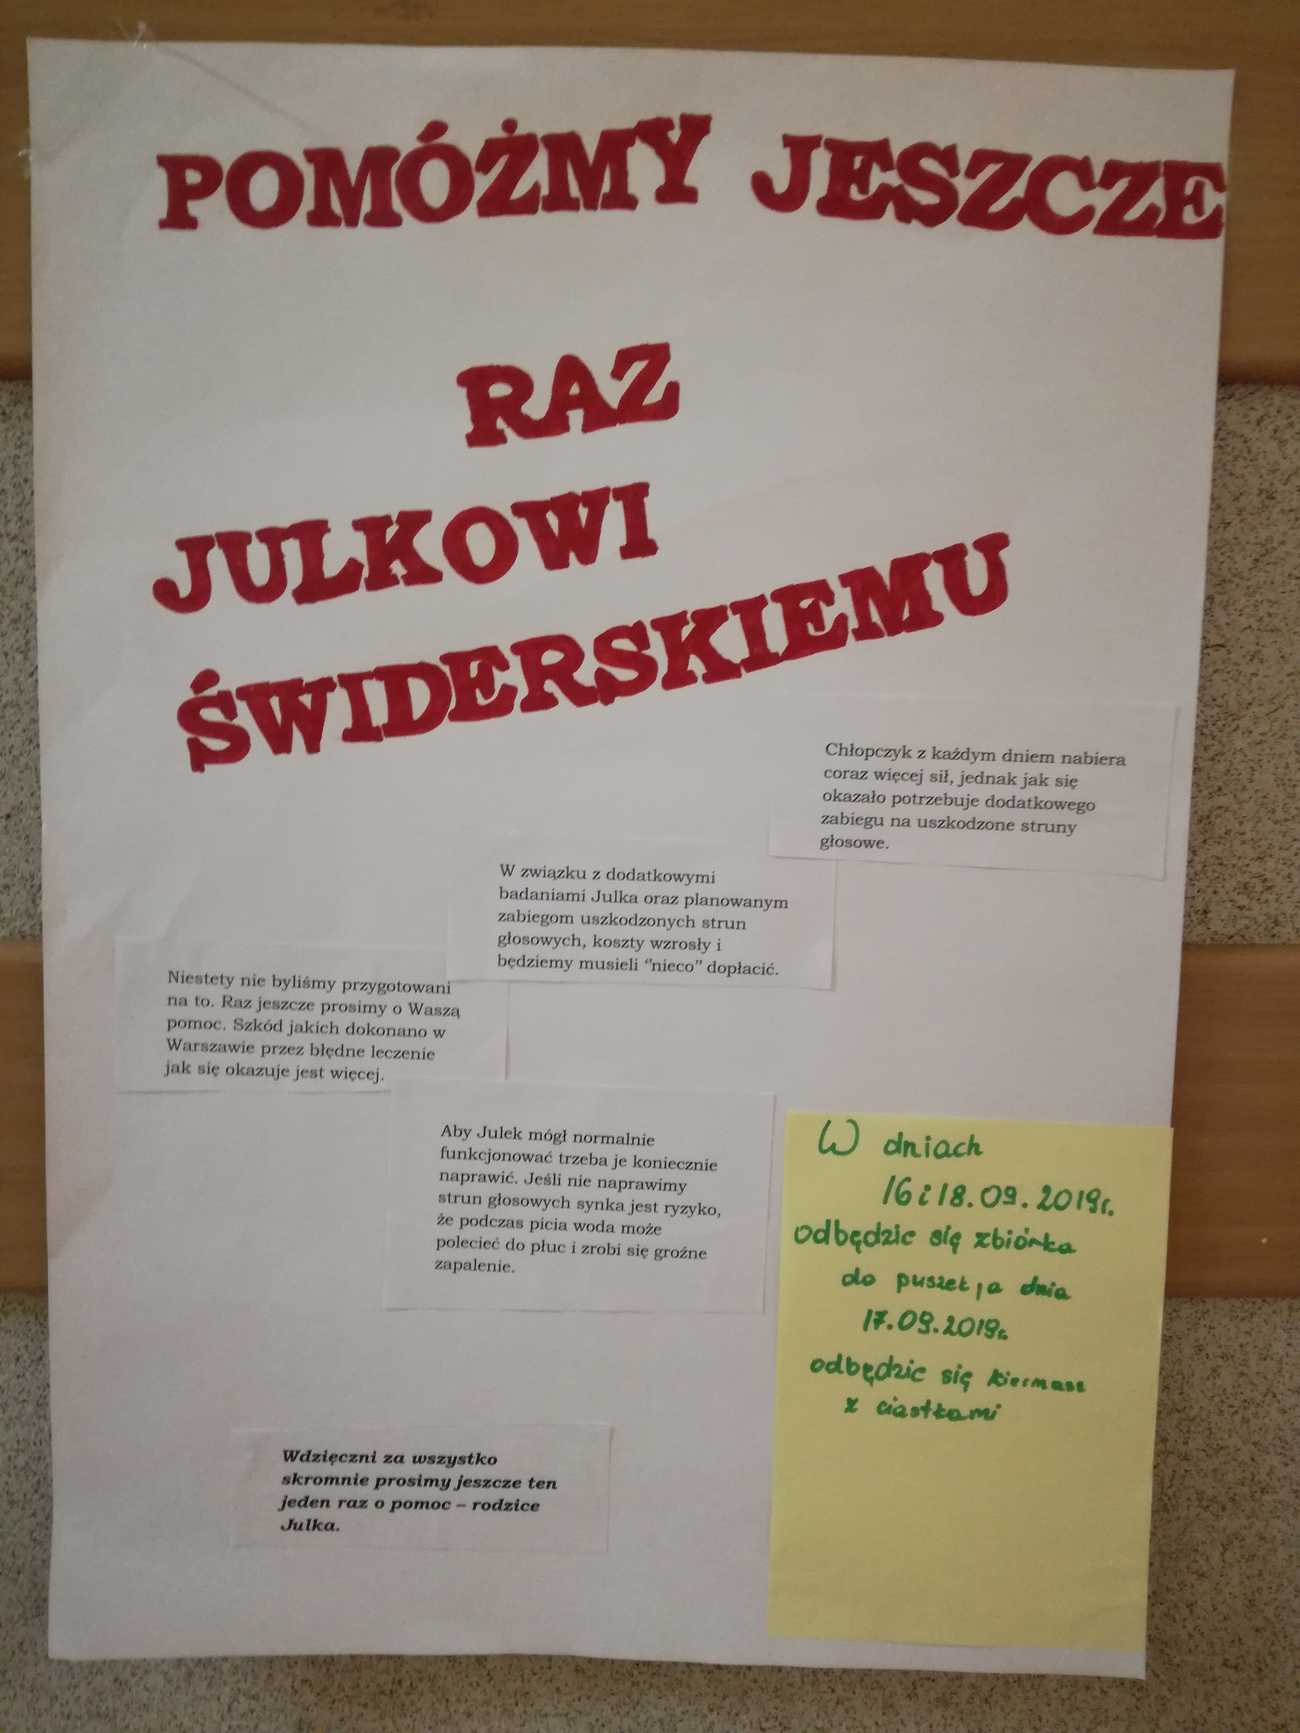 POMÓŻMY JESZCZE
RAZ
JULKOWI
ŚWIDERSKIEMU
Chłopczyk z każdym dniem nabiera
coraz więcej sił, jednak jak się
okazało potrzebuje dodatkowego
zabiegu na uszkodzone struny
głosowe.
W związku z dodatkowymi
badaniami Julka oraz planowanym
zabiegom uszkodzonych strun
głosowych, koszty wzrosły i
będziemy musieli "nieco" dopłacić.
Niestety nie byliśmy przygotowani
na to. Raz jeszcze prosimy o Waszą
pomoc. Szkód jakich dokonano w
Warszawie przez błędne leczenie
jak się okazuje jest więcej.
Aby Julek mógł normalnie
funkcjonować trzeba je koniecznie
naprawić. Jeśli nie naprawimy
strun głosowych synka jest ryzyko,
że podczas picia woda może
polecieć do płuc i zrobi się groźne
zapalenie.
W dniach
16 i 18.09.2019r.
odbędzie się zbiórka
do puszek, a dnia
17.09.2019r.
odbędzie się kiermasz
z ciastkami
Wdzięczni za wszystko
skromnie prosimy jeszcze ten
jeden raz o pomoc – rodzice
Julka.